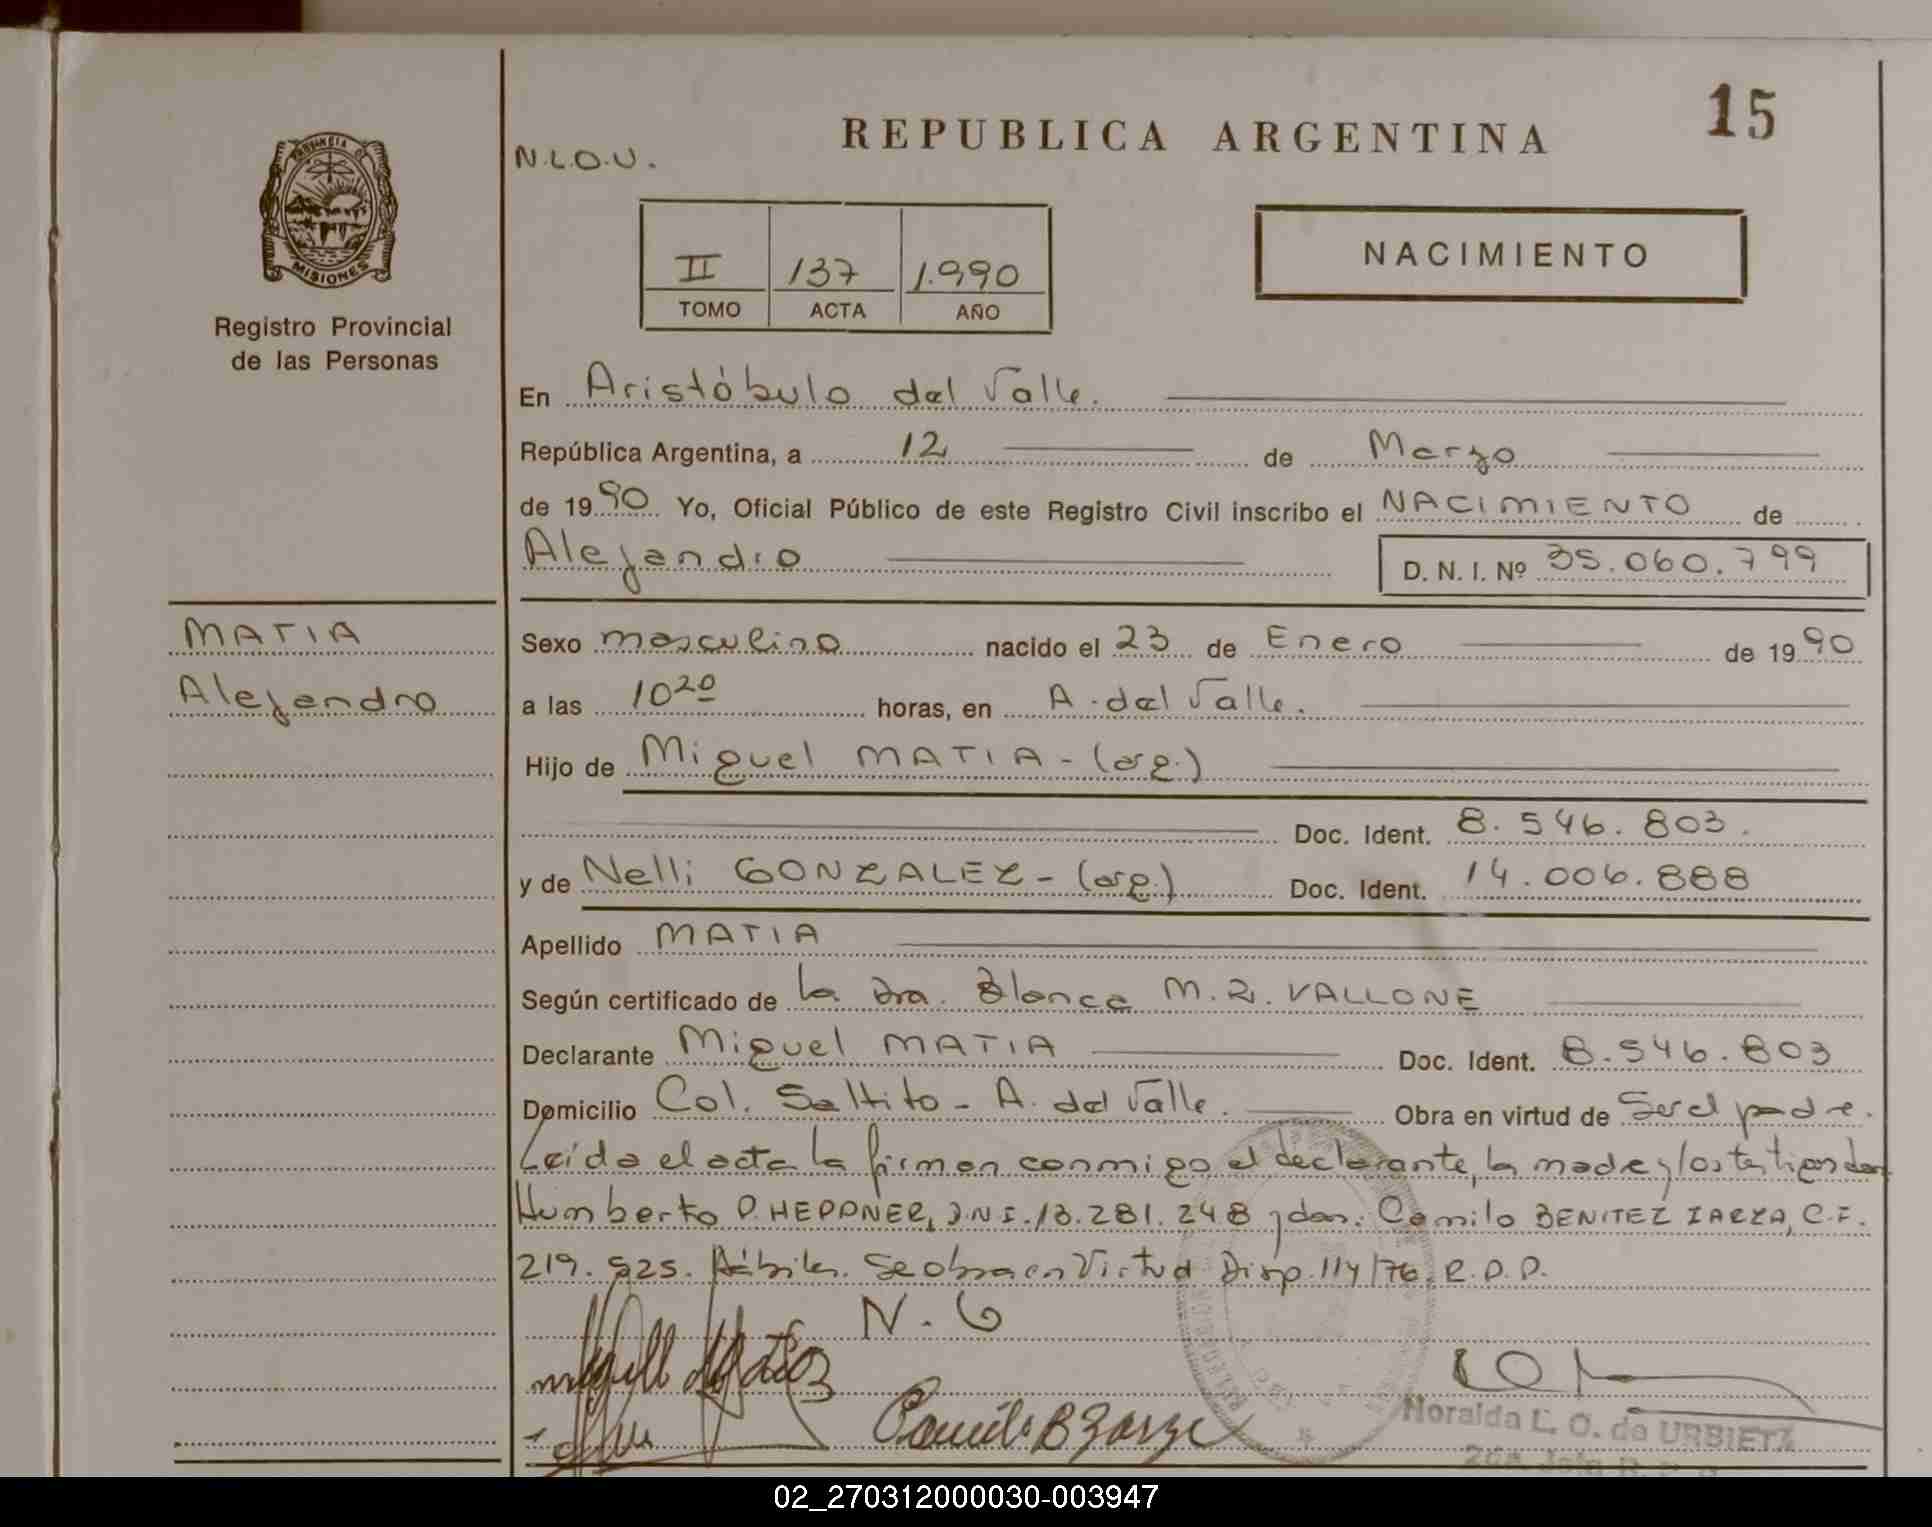 REPUBLICA ARGENTINA
15
N.L.O.U.
PROVINCIA DE
MISIONES
Registro Provincial
de las Personas
II 137 1.990
TOMO ACTA AÑO
NACIMIENTO
En Aristóbulo del Valle.
República Argentina, a 12 de Marzo
de 1990 Yo, Oficial Público de este Registro Civil inscribo el NACIMIENTO de
Alejandro D. N. I. Nº 35.060.799
MATIA
Alejandro
Sexo masculino nacido el 23 de Enero de 1990
a las 10 20 horas, en A. del Valle.
Hijo de Miguel MATIA - (arg.)
Doc. Ident. 8.546.803.
y de Nelli GONZALEZ - (arg.) Doc. Ident. 14.006.888
Apellido MATIA
Según certificado de la Dra. Blanca M. R. VALLONE
Declarante Miguel MATIA Doc. Ident. 8.546.803
Domicilio Col. Saltito - A. del Valle. Obra en virtud de Ser el padre.
Leída el acta la firman conmigo el declarante, la madre y los testigos don
Humberto P. HEPPNER, D.N.I. 13.281.248 y don: Camilo BENITEZ ZARZA, C.I.
219.525. Hábiles. Se obra en Virtud Disp. 114/76. R.P.P.
N. G
Camilo B Zarza
Noralda L. O. de URBIETA
02_270312000030-003947